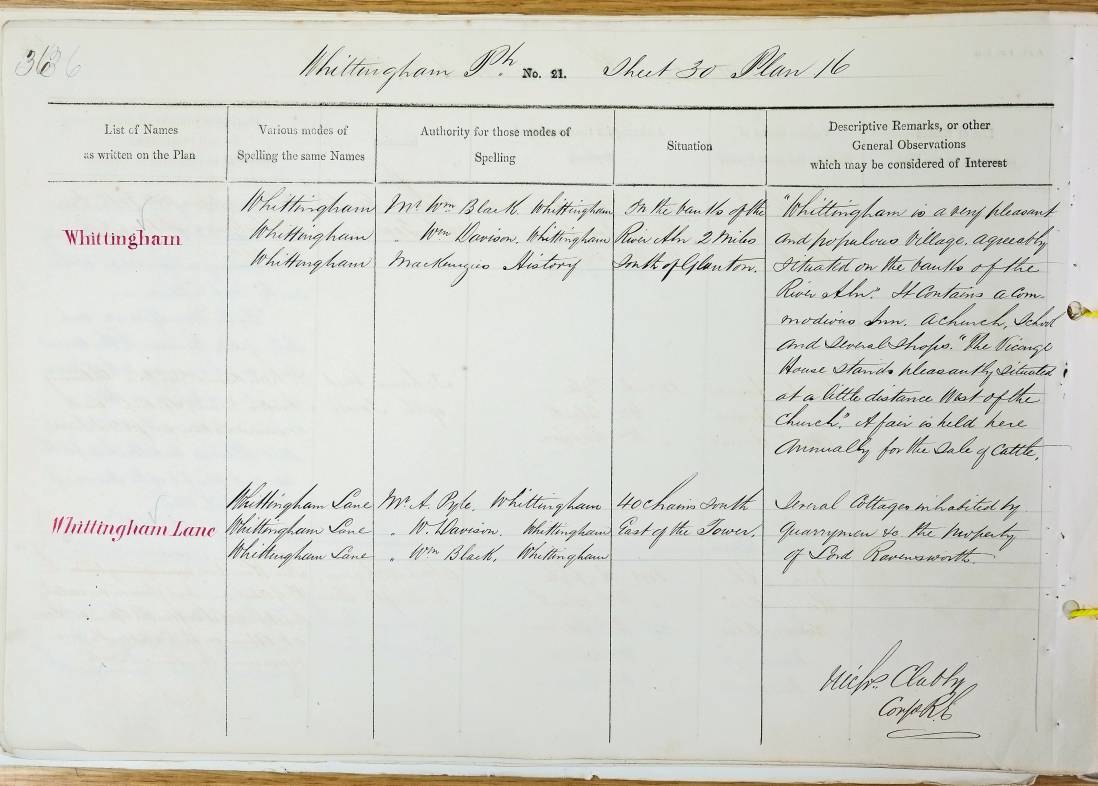 36
Whittingham Ph. No. 21. Sheet 30 Plan 16
List of Names
as written on the Plan
Various modes of
Spelling the same Names
Authority for those modes of
Spelling
Situation
Descriptive Remarks, or other
General Observations
which may be considered of Interest
Whittingham
Whittingham
Whittingham
Whittingham
Mr. Wm Black. Whittingham
„ Wm Davison. Whittingham
MacKenzies History
In the banks of the
River Aln 2 Miles
South of Glanton.
"Whittingham is a very pleasant
and populous Village, agreeably
situated on the banks of the
River Aln". It contains a com-
modious Inn. a church, School
and several shops. "The Vicarage
House stands pleasantly situated
at a little distance West of the
Church". A fair is held here
Annually for the Sale of Cattle.
Whittingham Lane
Whittingham Lane
Whittingham Lane
Whittingham Lane
Mr. A. Pyle. Whittingham
„ W. Davison. Whittingham
„ Wm Black. Whittingham
40 chains South
East of the Tower.
Several Cottages inhabited by
Quarrymen &c the property
of Lord Ravensworth.
Nichs. Clabby
Corpl R.E